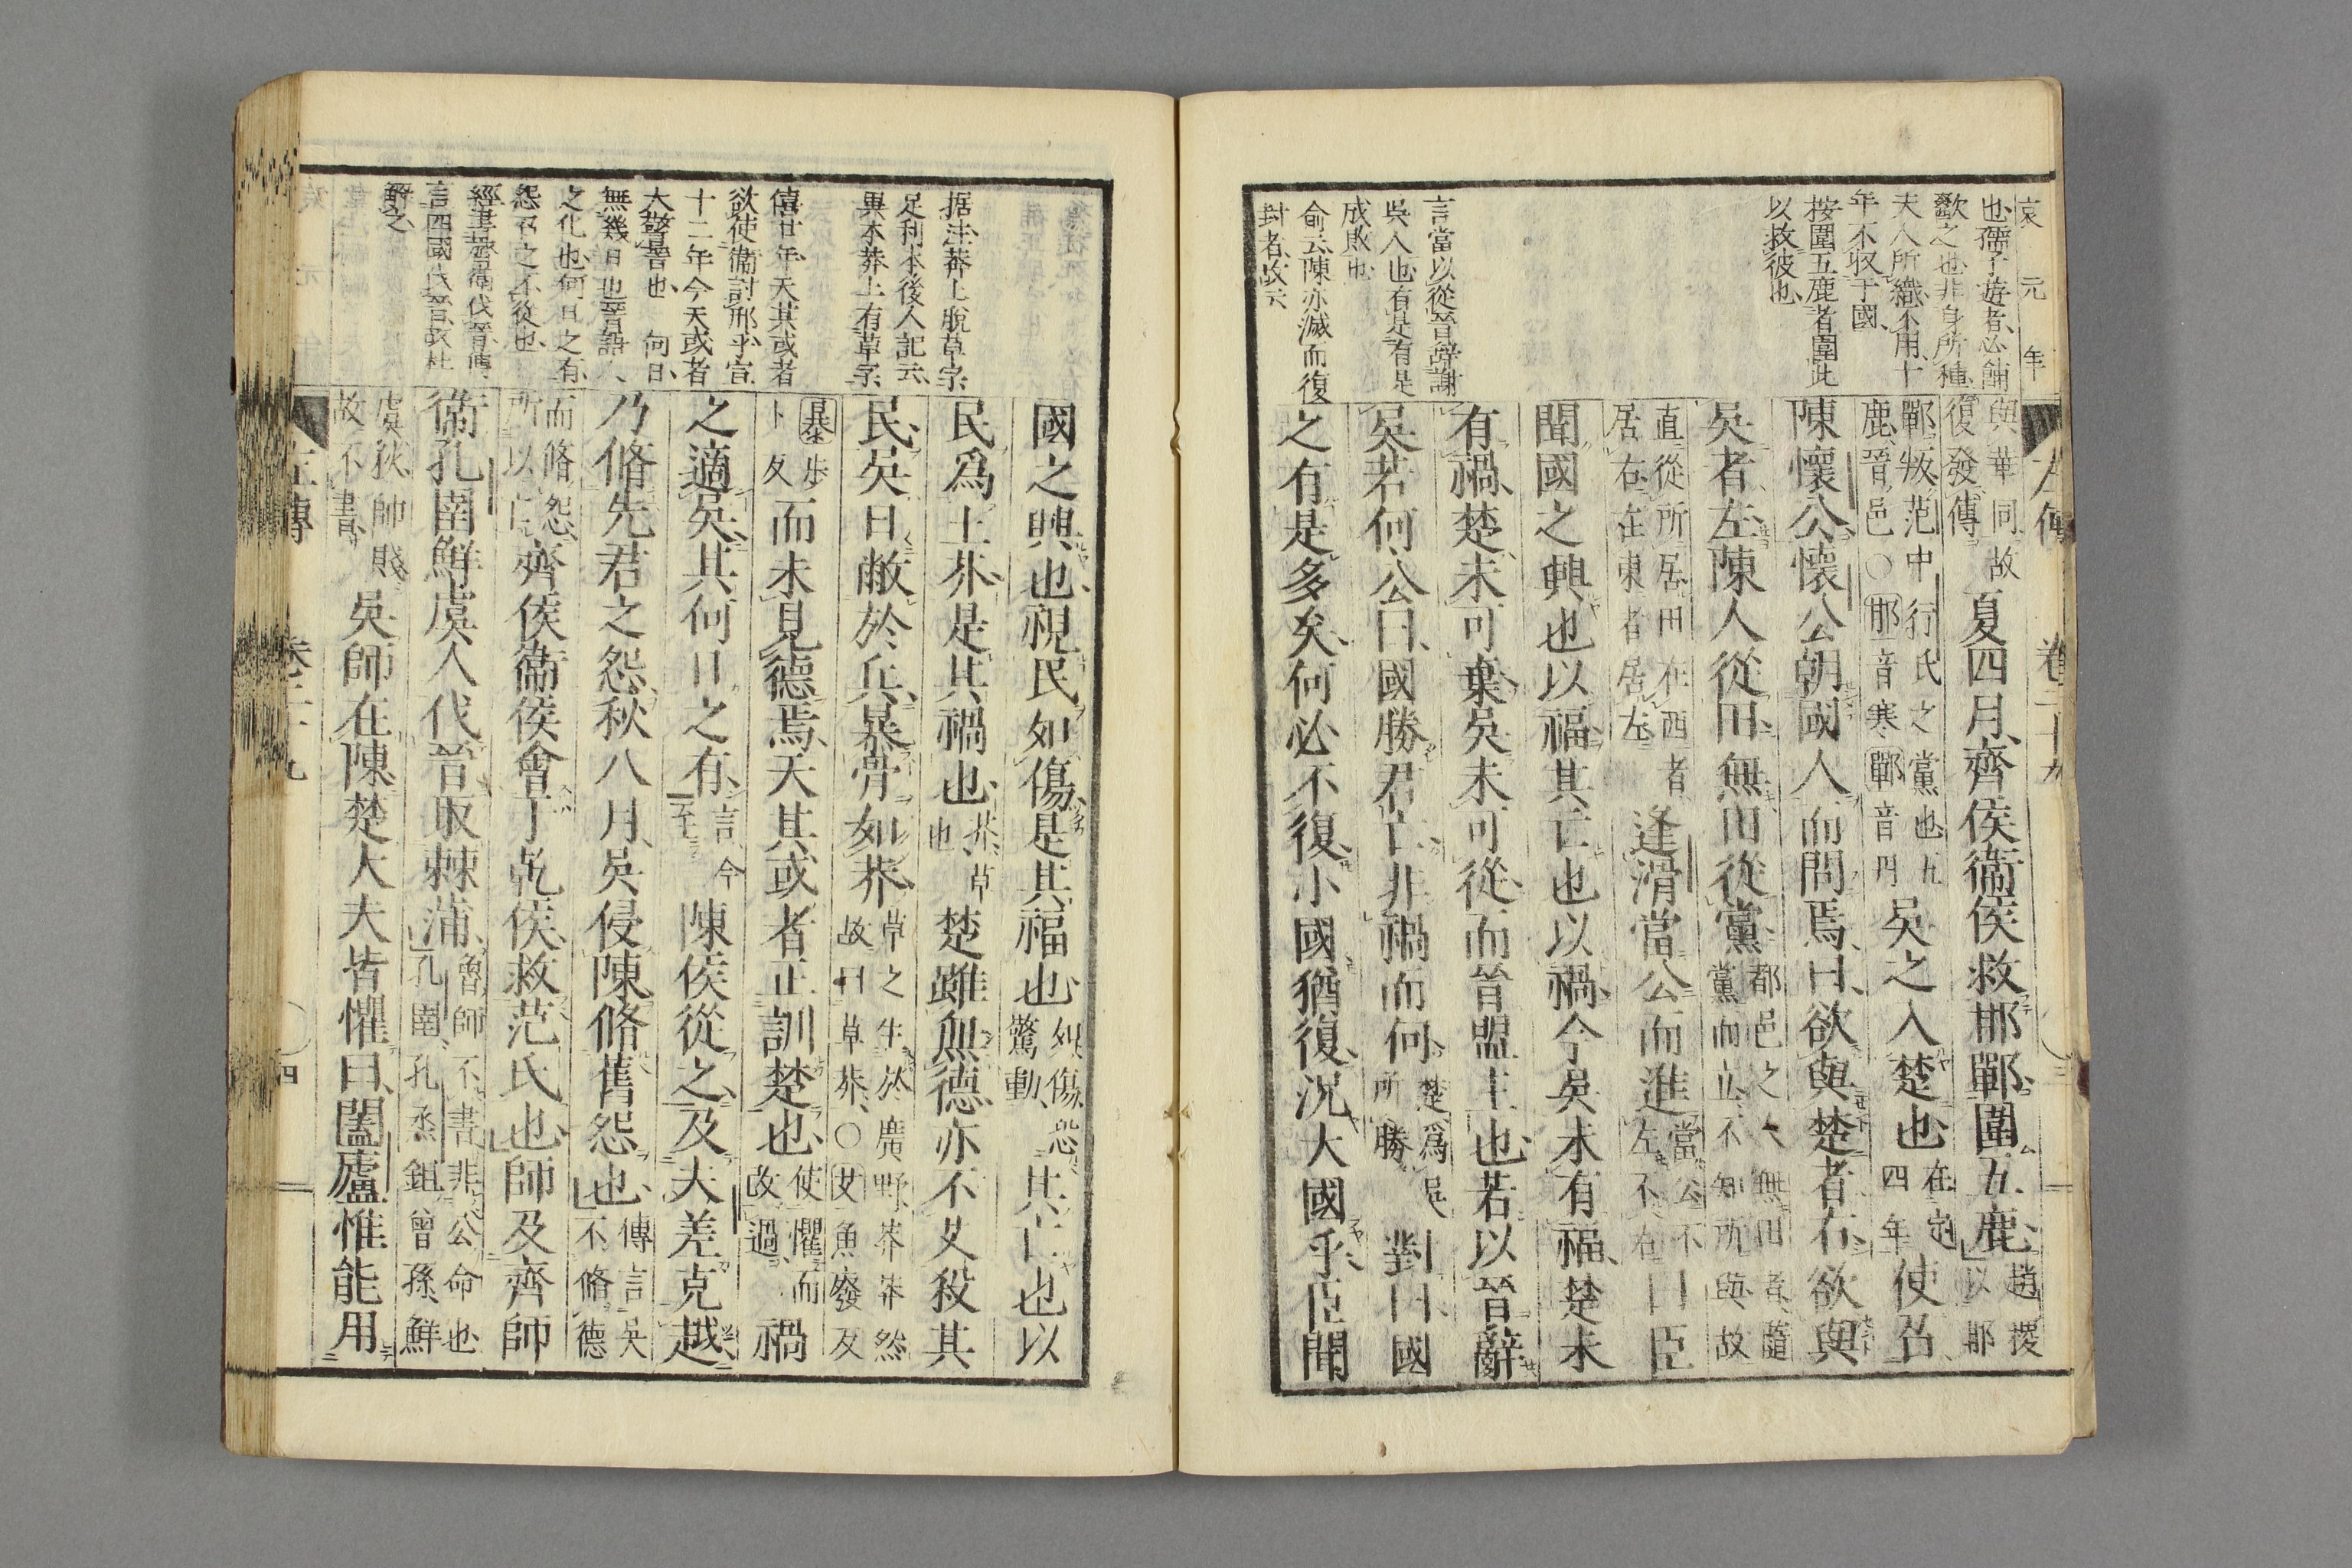 哀元年
也孺子遊者必餔
歠之也非身所種
夫人所織不用十
年不収于國
按圍五鹿者圍此
以救彼也
言當以從晉辭謝
吳人也有是有是
成敗也
俞云陳亦滅而復
封者故云
左傳 卷二十九
與華同故
復發傳
夏四月齊侯衞侯救邯鄲圍五鹿
趙稷
以邯
鄲叛范中行氏之黨也五
鹿晉邑〇邯音寒鄲音丹
吳之入楚也
在定
四年
使召
陳懷公懷公朝國人而問焉曰欲與楚者右欲與
吳者左陳人從田無田從黨
都邑之人無田者隨
黨而立不知所與故
直從所居田在西者
居右在東者居左
逢滑當公而進
當公不
左不右
曰臣
聞國之興也以福其亡也以禍今吳未有福楚未
有禍楚未可棄吳未可從而晉盟主也若以晉辭
吳若何公曰國勝君亡非禍而何
楚爲吳
所勝
對曰國
之有是多矣何必不復小國猶復況大國乎臣聞
据注莽上脫草字
足利本後人記云
異本莽上有草字
僖廿年天其或者
欲使衞討邢乎宣
十二年今天或者
大警晉也 何日
無幾日也晉語
之化也何日之有
怨召之不從也
經書齊衞伐晉傳
言四國氏晉故杜
解之
國之興也視民如傷是其福也
如傷恐
驚動
其亡也以
民爲土芥是其禍也
芥草
也
楚雖無德亦不艾殺其
民吳日敝於兵暴骨如莽
草之生於廣野莽莽然
故曰草莽〇艾魚廢反
暴步
卜反
而未見德焉天其或者正訓楚也
使懼而
改過
禍
之適吳其何日之有
言今
至
陳侯從之及夫差克越
乃脩先君之怨秋八月吳侵陳脩舊怨也
傳言吳
不脩德
而脩怨
所以亡
齊侯衞侯會于乾侯救范氏也師及齊師
衞孔圉鮮虞人伐晉取棘蒲
魯師不書非公命也
孔圉孔烝鉏曾孫鮮
虞狄師賤
故不書
吳師在陳楚大夫皆懼曰闔廬惟能用
左傳 卷二十九 四